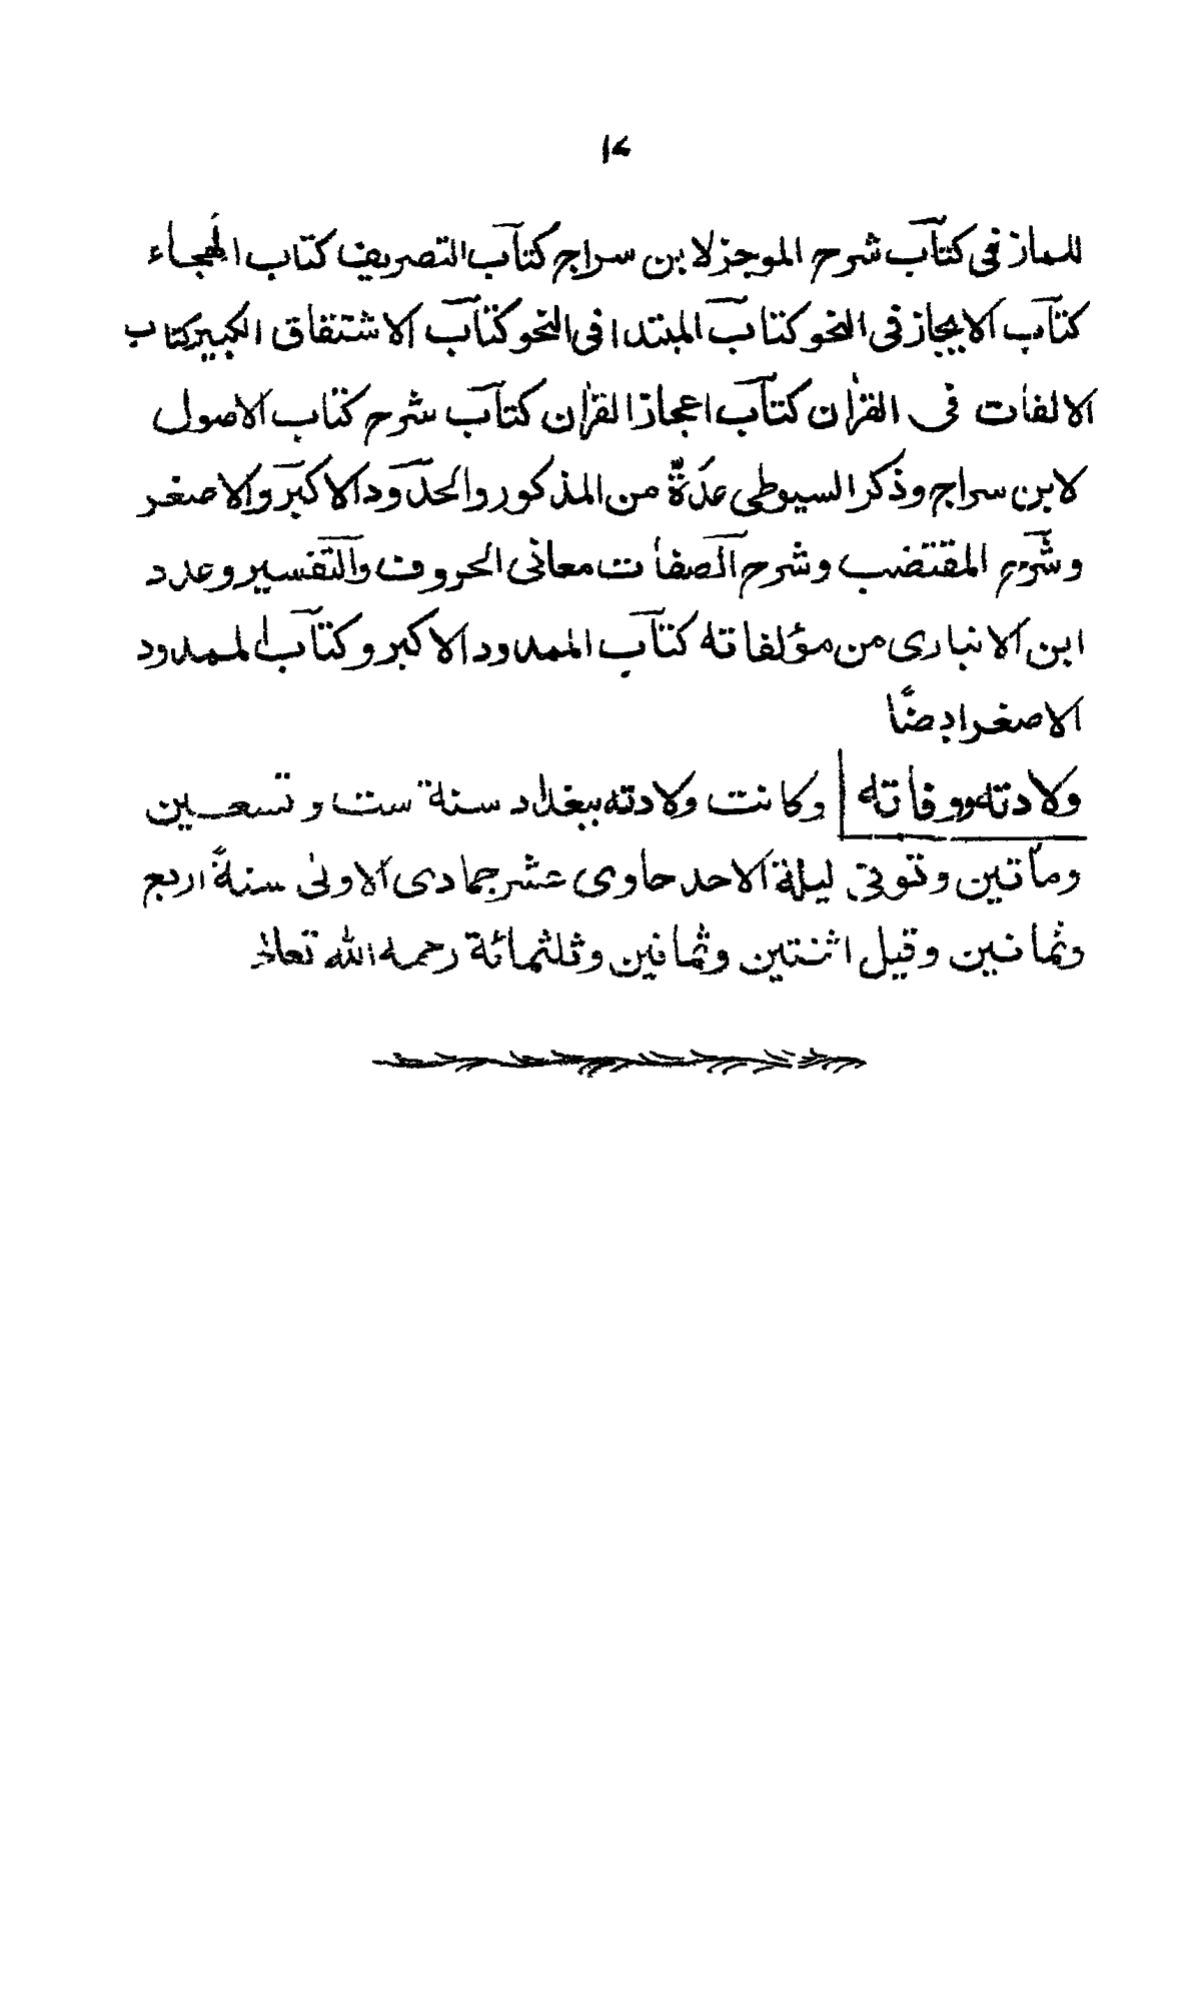 للمازفی كتاب شرح الموجز لابن سراج كتاب التصريف كتاب الهجاء
كتاب الايجاز فى النحو كتاب المبتدا فى النحو كتاب الاشتقاق الكبير كتاب
الالفات فى القرٰان كتاب اعجاز القرٰان كتاب شرح كتاب الاصول
لابن سراج وذكر السيوطى عدةٌ من المذكور والحدود الاكبر والاصغر
وشرح المقتضب وشرح الصفات معانى الحروف والتفسير وعدد
ابن الانبارى من مؤلفاته كتاب الممدود الاكبر وكتاب الممدود
الاصغر ايضًا
ولادته ووفاته وكانت ولادته ببغداد سنة ست وتسعين
ومأتين وتوفى ليلة الاحد حاوى عشر جمادى الاولىٰ سنةً اربع
وثمانين وقيل اثنتين وثمانين وثلثمائة رحمه الله تعالى